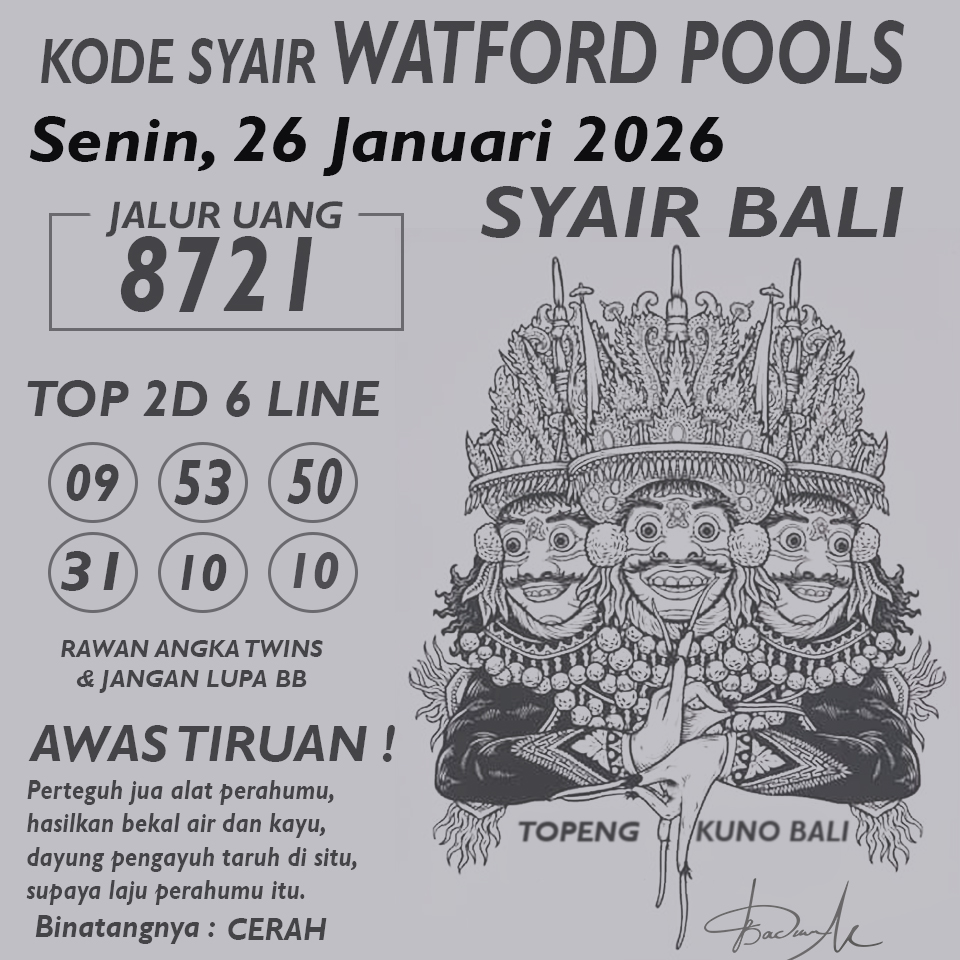 KODE SYAIR WATFORD POOLS
Senin, 26 Januari 2026
SYAIR BALI
JALUR UANG
8721
TOP 2D 6 LINE
09 53 50
31 10 10
RAWAN ANGKA TWINS
& JANGAN LUPA BB
AWAS TIRUAN !
Perteguh jua alat perahumu,
hasilkan bekal air dan kayu,
dayung pengayuh taruh di situ,
supaya laju perahumu itu.
Binatangnya : CERAH
TOPENG KUNO BALI